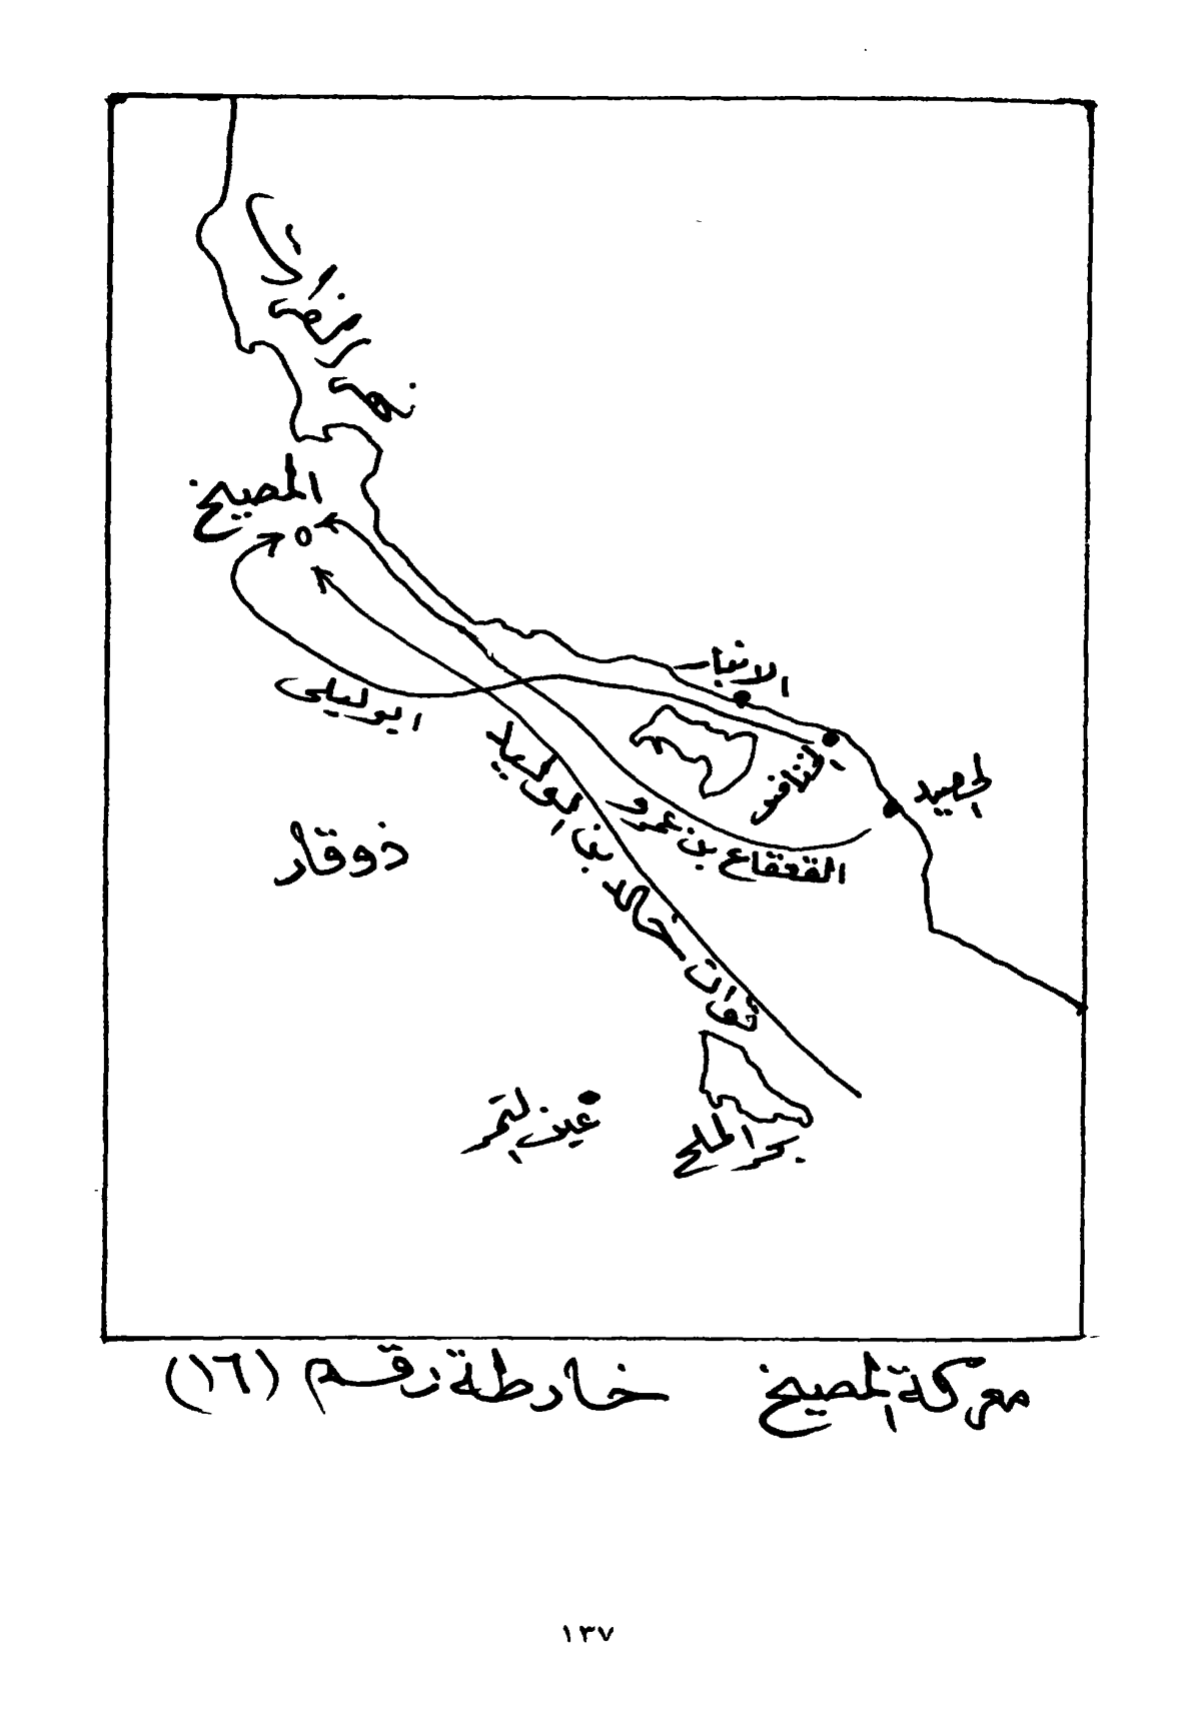 نهر الفرات
المصيخ
الانبار
الخنافس
الحصيد
ابو ليلى
القعقاع بن عمرو
قوات خالد بن الوليد
ذوقار
عين التمر
بحر الملح
معركة المصيخ خارطة رقم (١٦)
١٣٧